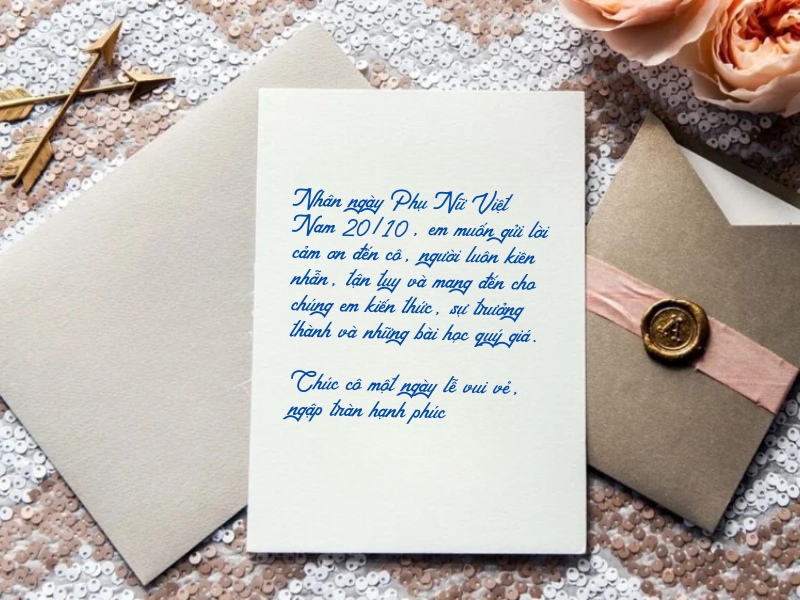 Nhân ngày Phụ Nữ Việt
Nam 20/10, em muốn gửi lời
cảm ơn đến cô, người luôn kiên
nhẫn, tận tụy và mang đến cho
chúng em kiến thức, sự trưởng
thành và những bài học quý giá.
Chúc cô một ngày lễ vui vẻ,
ngập tràn hạnh phúc